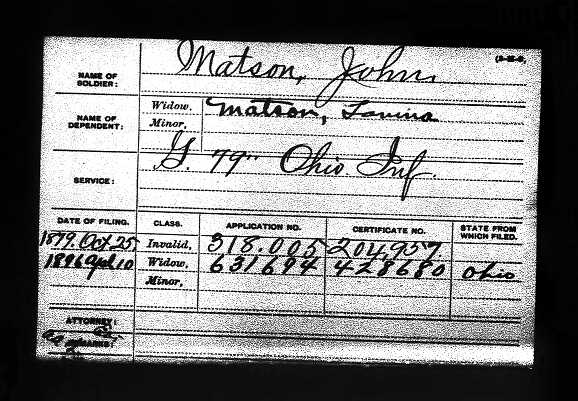 Matson, John.
NAME OF SOLDIER:
NAME OF DEPENDENT:
Widow, Matson, Lavina
Minor,
SERVICE: G. 79" Ohio Inf.
DATE OF FILING. CLASS. APPLICATION NO. CERTIFICATE NO. STATE FROM WHICH FILED.
1879. Oct. 25. Invalid, 318.005 204,957
1896 Apl 10 Widow, 631694 428680 Ohio
Minor,
ATTORNEY:
REMARKS: